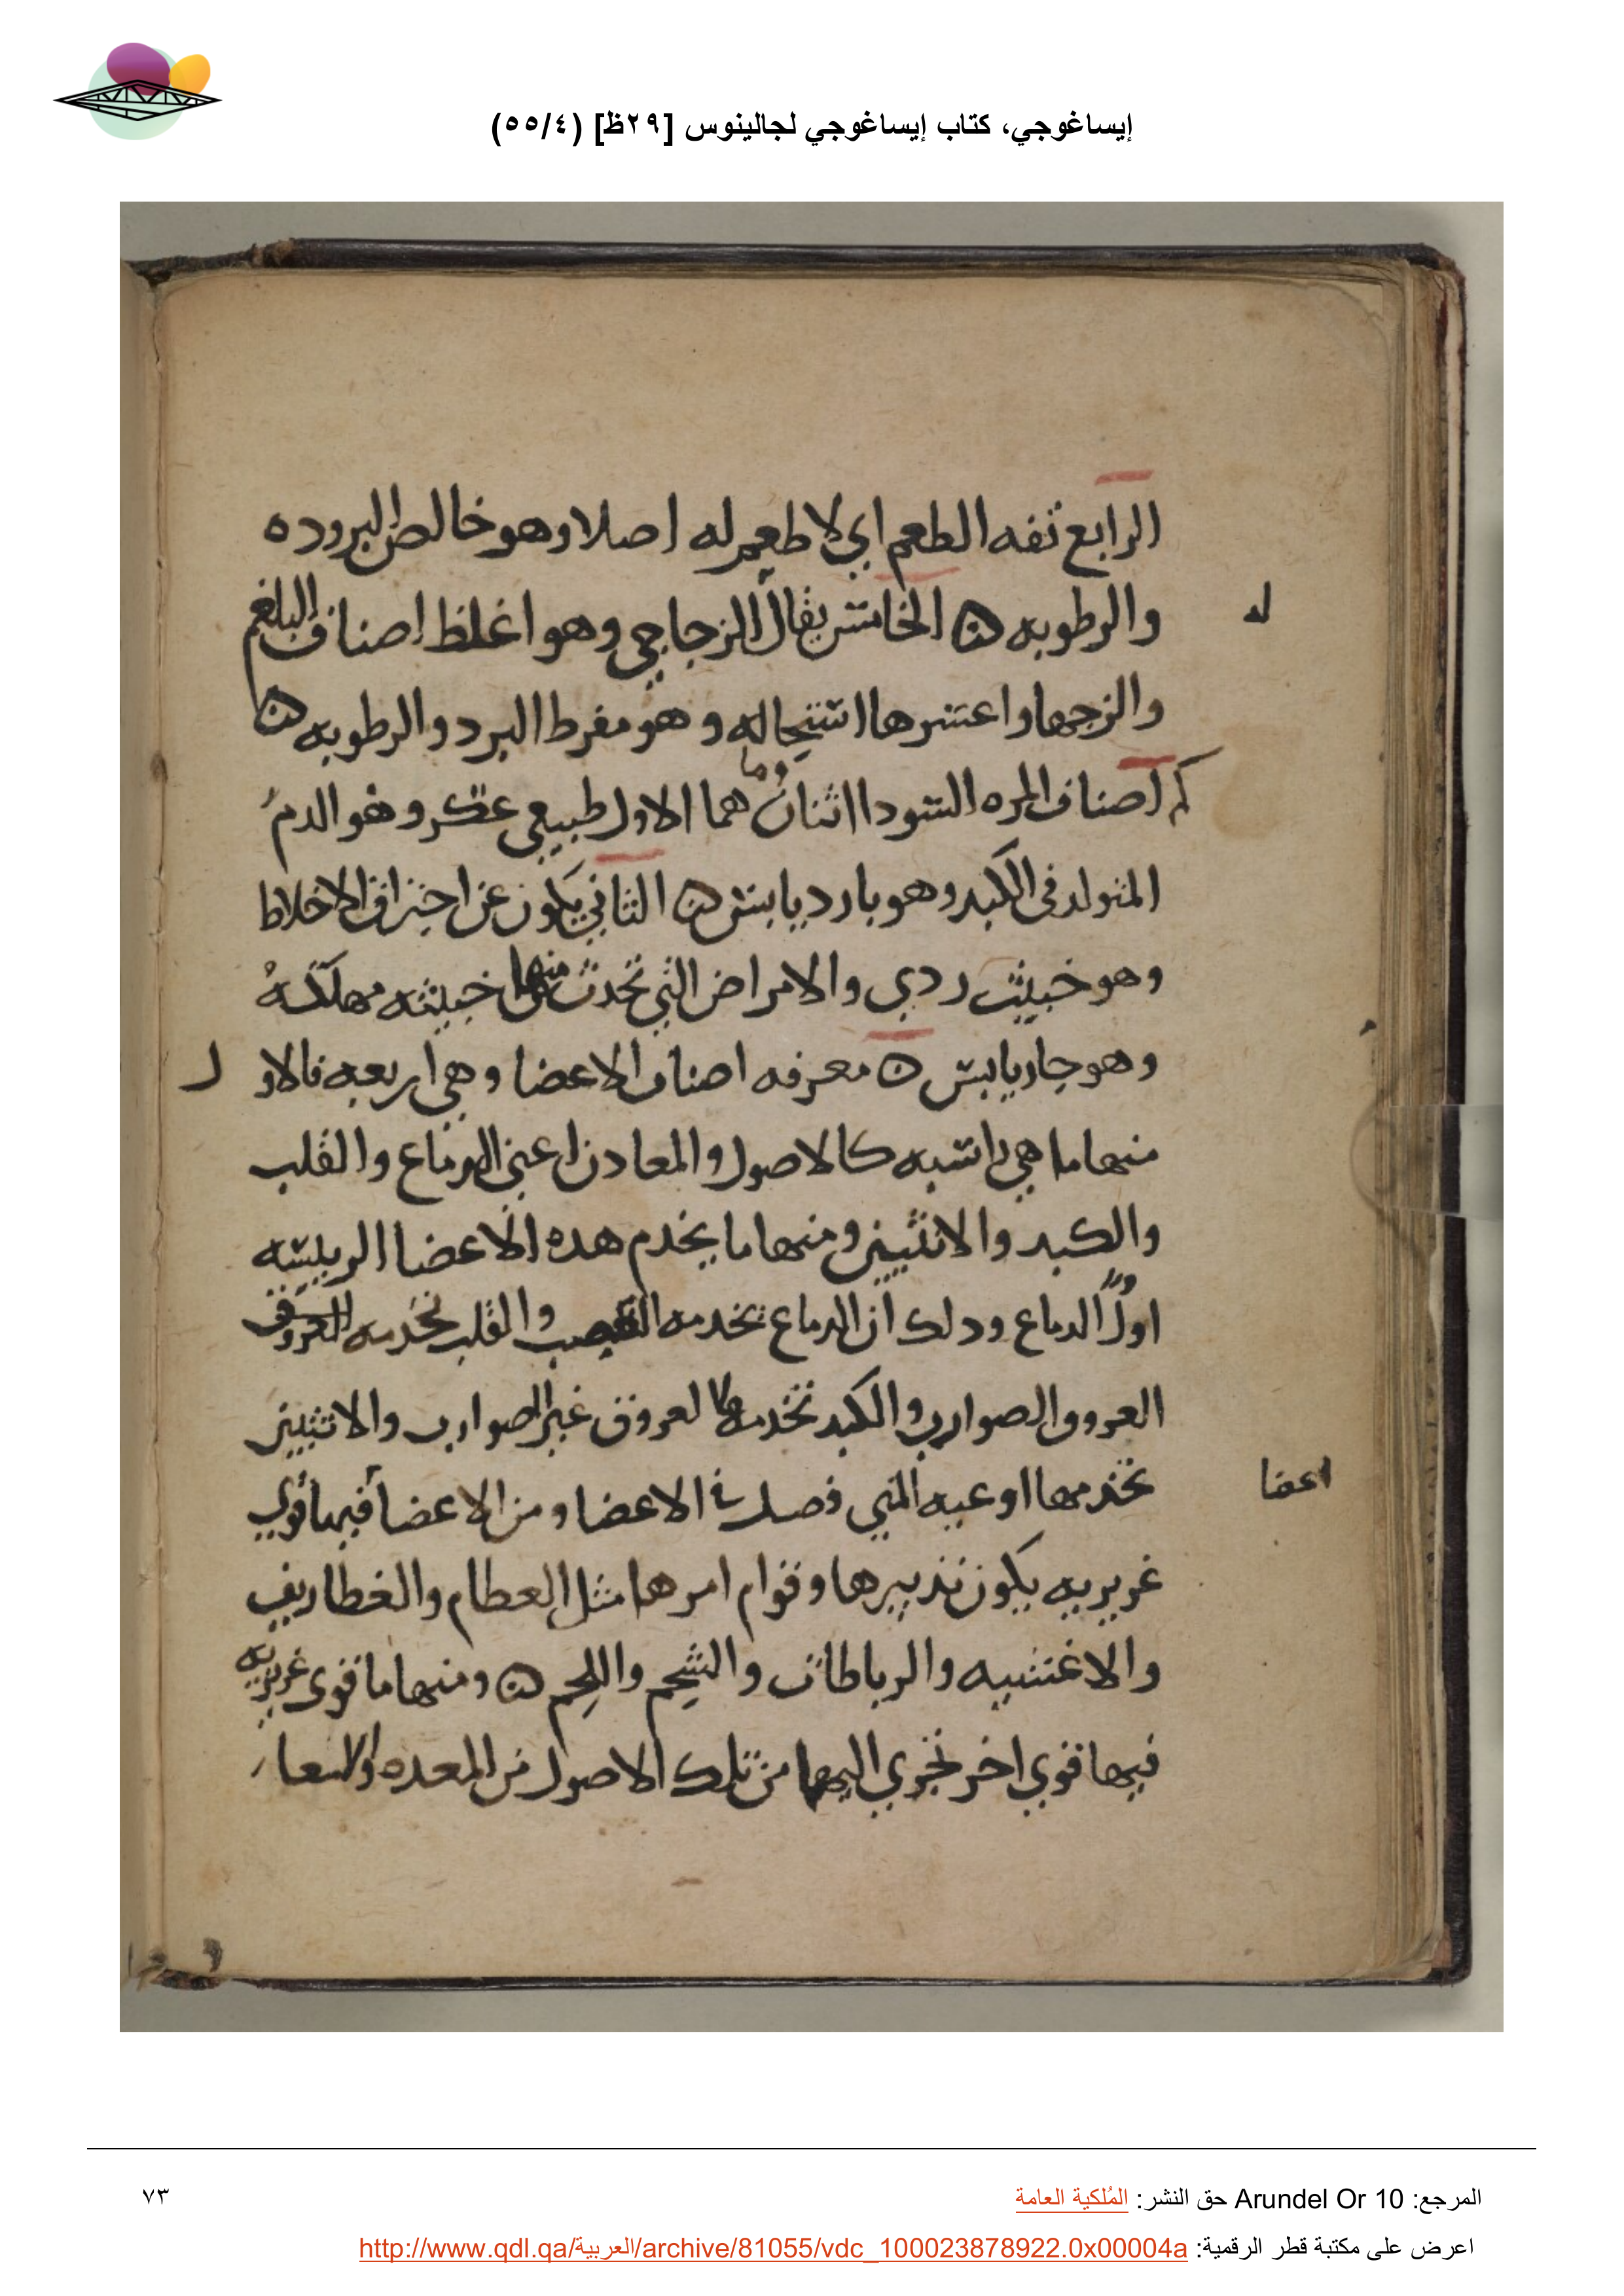 إيساغوجي، كتاب إيساغوجي لجالينوس [٢٩ظ] (٥٥/٤)
الرابع تفه الطعم اي لا طعم له اصلا وهو خالص البروده
والرطوبه الخامس يقال الزجاجي وهو اغلظ اصناف البلغم
له
والزجها واعسرها استحاله وهو مفرط البرد والرطوبه
كم اصناف المره السودا اثنان وما هما الاول طبيعي عكر وهو الدم
المتولد في الكبد وهو بارد يابس الثاني يكون عن احتراق الاخلاط
وهو خبيث ردي والامراض التي تحدث منها خبيثه مهلكه
وهو حار يابس ه معرفه اصناف الاعضا وهي اربعه فالاو
ل
منها ما هي راسيه كالاصول والمعادن اعني الدماغ والقلب
والكبد والانثيين ومنها ما يخدم هده الاعضا الرييسه
اولا الدماغ ودلك ان الدماغ تخدمه العصب والقلب تخدمه العروق
العروق الصوارب والكبد تخدمها لعروق غير الصوارب والانثيين
تخدمها اوعيه المني فصل في الاعضا ومن الاعضا فيها قوي
اعضا
غريزيه يكون تدبيرها وقوام امرها مثل العظام والغطاريف
والاغشيه والرباطات والشحم واللحم ومنها ما قوى غريزيه
فيها قوي اخر تجري اليها من تلك الاصول من المعده والامعا
المرجع: Arundel Or 10 حق النشر: المُلكية العامة
٧٣
اعرض على مكتبة قطر الرقمية: http://www.qdl.qa/العربية/archive/81055/vdc_100023878922.0x00004a